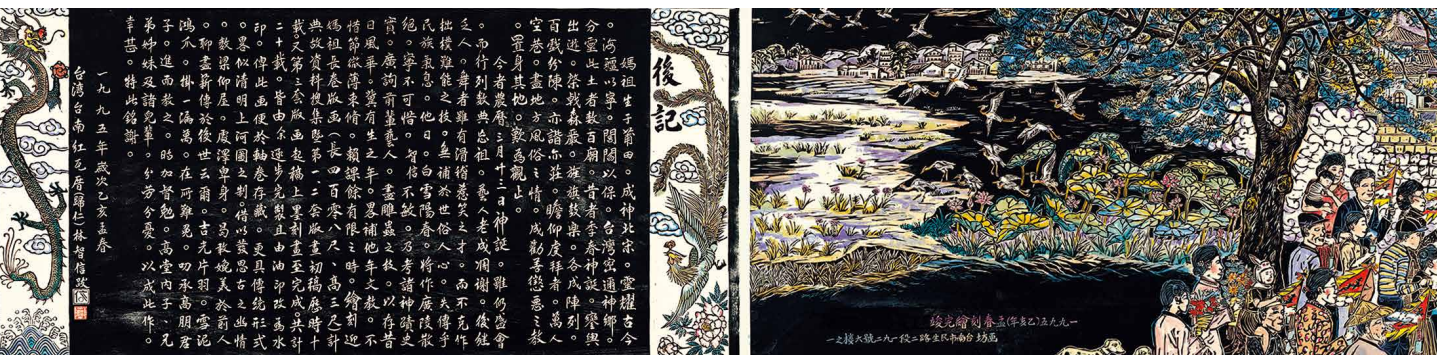 後記
媽祖生于莆田。成神北宋。靈耀古今
。海疆以寧。閭閻以保。台灣密邇神鄉。今
分靈此土者數百廟。昔者季春神誕。鑾輿
出遊。棨戟森嚴。旌旗鼓樂。各成陣列。
百戲紛陳。亦諧亦莊。瞻仰虔拜者。萬人
空巷。盡地方風俗之情。成勸善懲惡之教
。置身其地。歎為觀止。
今者農曆三月廿三日神誕。雖仍盛會
。而行列數典忘祖。藝人老成凋謝。後繼
乏人。舞者雖有滑稽惹笑之才。而不克作
拙樸難能之技。無補於世俗人心。失傳乎
民族氣息。他日。白雪陽春。將作廣陵散
絕。寧不可惜。智信不敏。乃考諸神蹟史
實。廣詢前輩藝人。盡雕蟲之技。以存昔
日風華。冀有生之年。畧補他年文教。不
惜節縮薄束脩。賴課餘有限之時。繪刻迎
媽祖長卷版画(長四百零八尺、高三尺)
典故資料搜集第一二套版畫初稿歷時十
載又第三套版画起稿上墨刻畫至完成。共計
二十載。皆由余逐步完製且由油印改為水
印。俾此画便於軸卷存藏。更具傳統形式
。畧似清明上河圖之制。借以發思古之幽情
。梁仰屋。身。曷敢媲美於前人
。聊盡薪傳於後世云爾。吉光片羽。雪泥
鴻爪。掛一漏萬。在所難免。叨承高朋君
子。進而教之。時加督勉。高堂內子。兄
弟姊妹及諸兒輩。分勞分憂。以成此作。
幸甚。特此銘謝。
一九九五年歲次乙亥孟春
台灣台南紅瓦厝歸仁林智信跋
一九九五(乙亥年)孟春刻繪完竣
画坊台南市民生路二段一九二號六樓之一